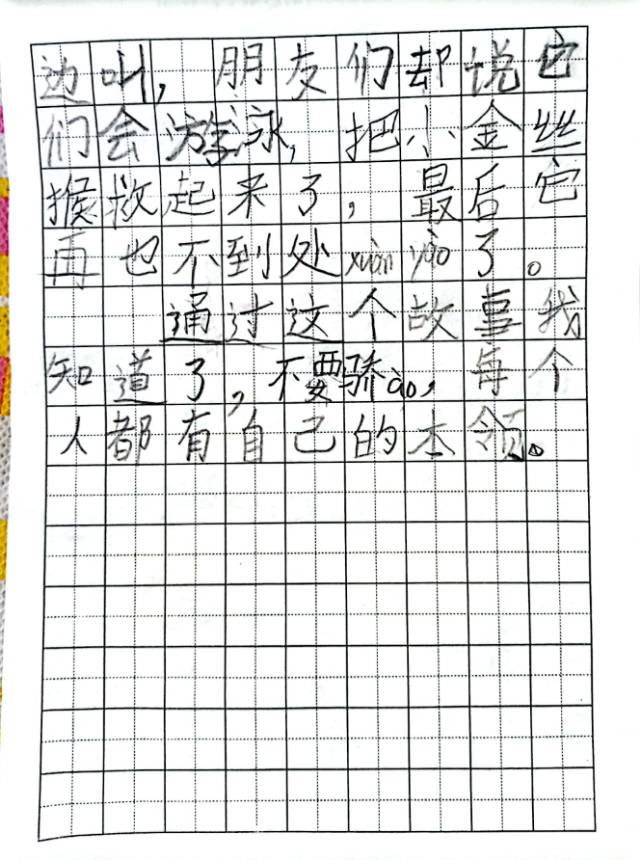 边叫，朋友们却说它
们会游泳，把小金丝
猴救起来了，最后它
再也不到处xuàn yào了。
通过这个故事我
知道了，不要骄ào，每个
人都有自己的本领。